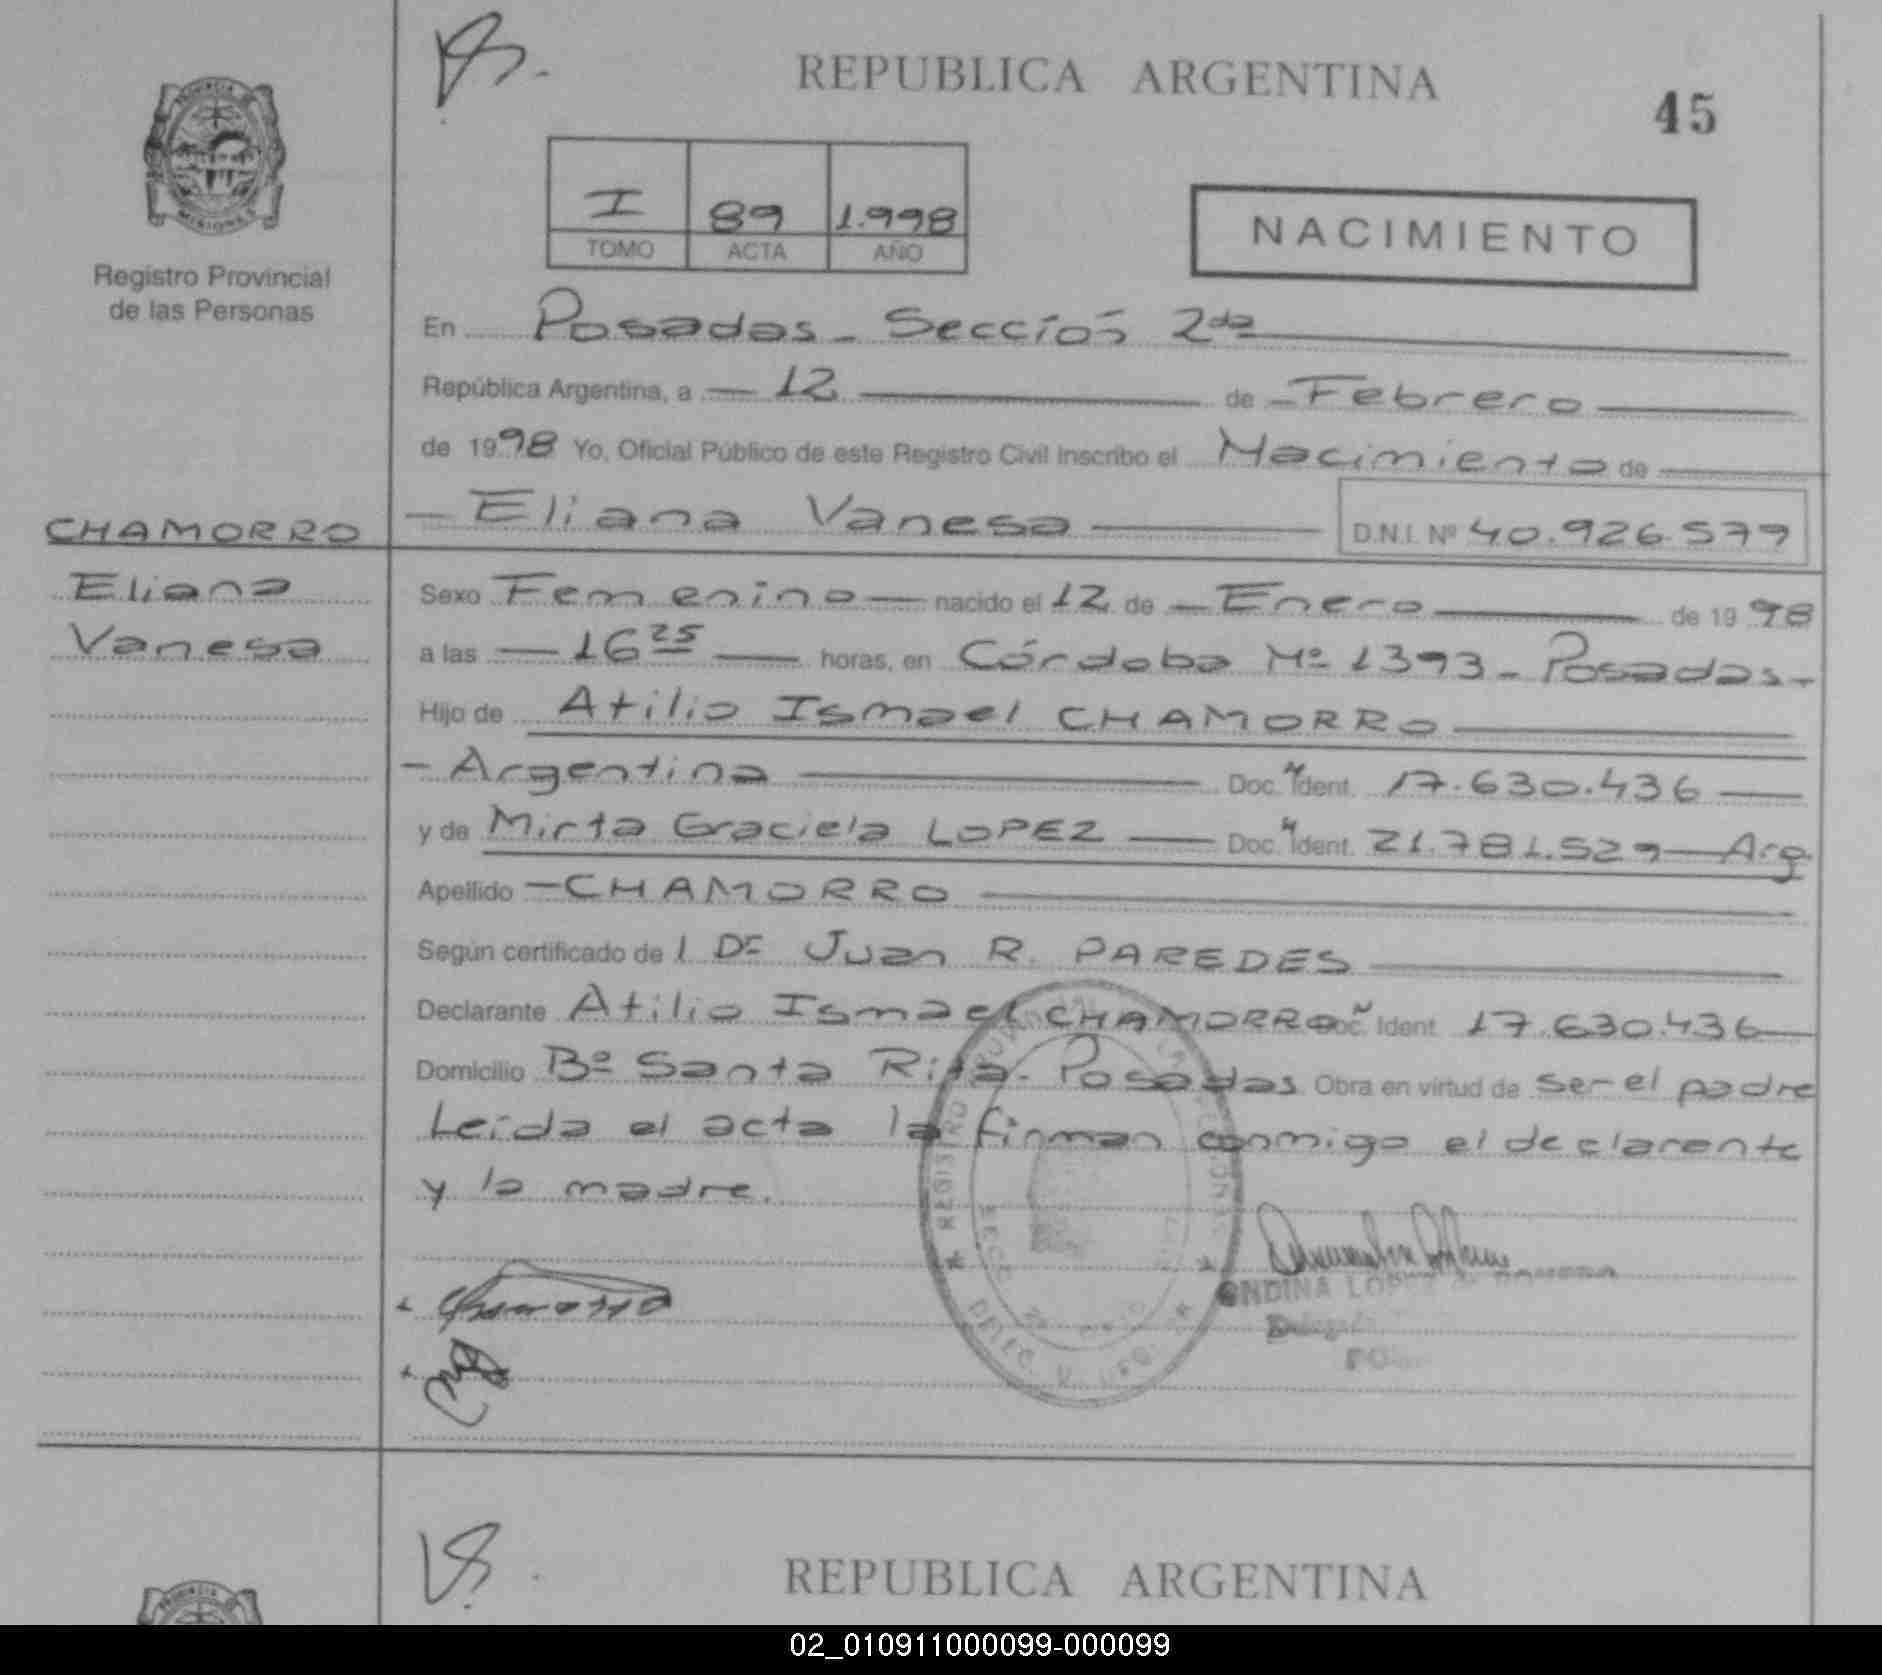 REPUBLICA ARGENTINA
45
PROVINCIA DE
MISIONES
Registro Provincial
de las Personas
I 89 1.998
TOMO ACTA AÑO
NACIMIENTO
En Posadas - Sección 2da
República Argentina, a - 12 de - Febrero
de 1998 Yo, Oficial Público de este Registro Civil inscribo el Nacimiento de
- Eliana Vanesa D.N.I. Nº 40.926.579
CHAMORRO
Eliana
Vanesa
Sexo Femenino nacido el 12 de - Enero de 1998
a las - 16 25 horas, en Córdoba Nº 1393 - Posadas -
Hijo de Atilio Ismael CHAMORRO
- Argentina Doc. Ident. 17.630.436
y de Mirta Graciela LOPEZ Doc. Ident. 21.781.529 - Arg.
Apellido - CHAMORRO
Según certificado de l Dr Juan R. PAREDES
Declarante Atilio Ismael CHAMORRO Doc. Ident. 17.630.436
Domicilio Bº Santa Rita - Posadas Obra en virtud de ser el padre
Leída el acta la firman conmigo el declarante
y la madre.
Chamorro
ONDINA
REPUBLICA ARGENTINA
02_010911000099-000099